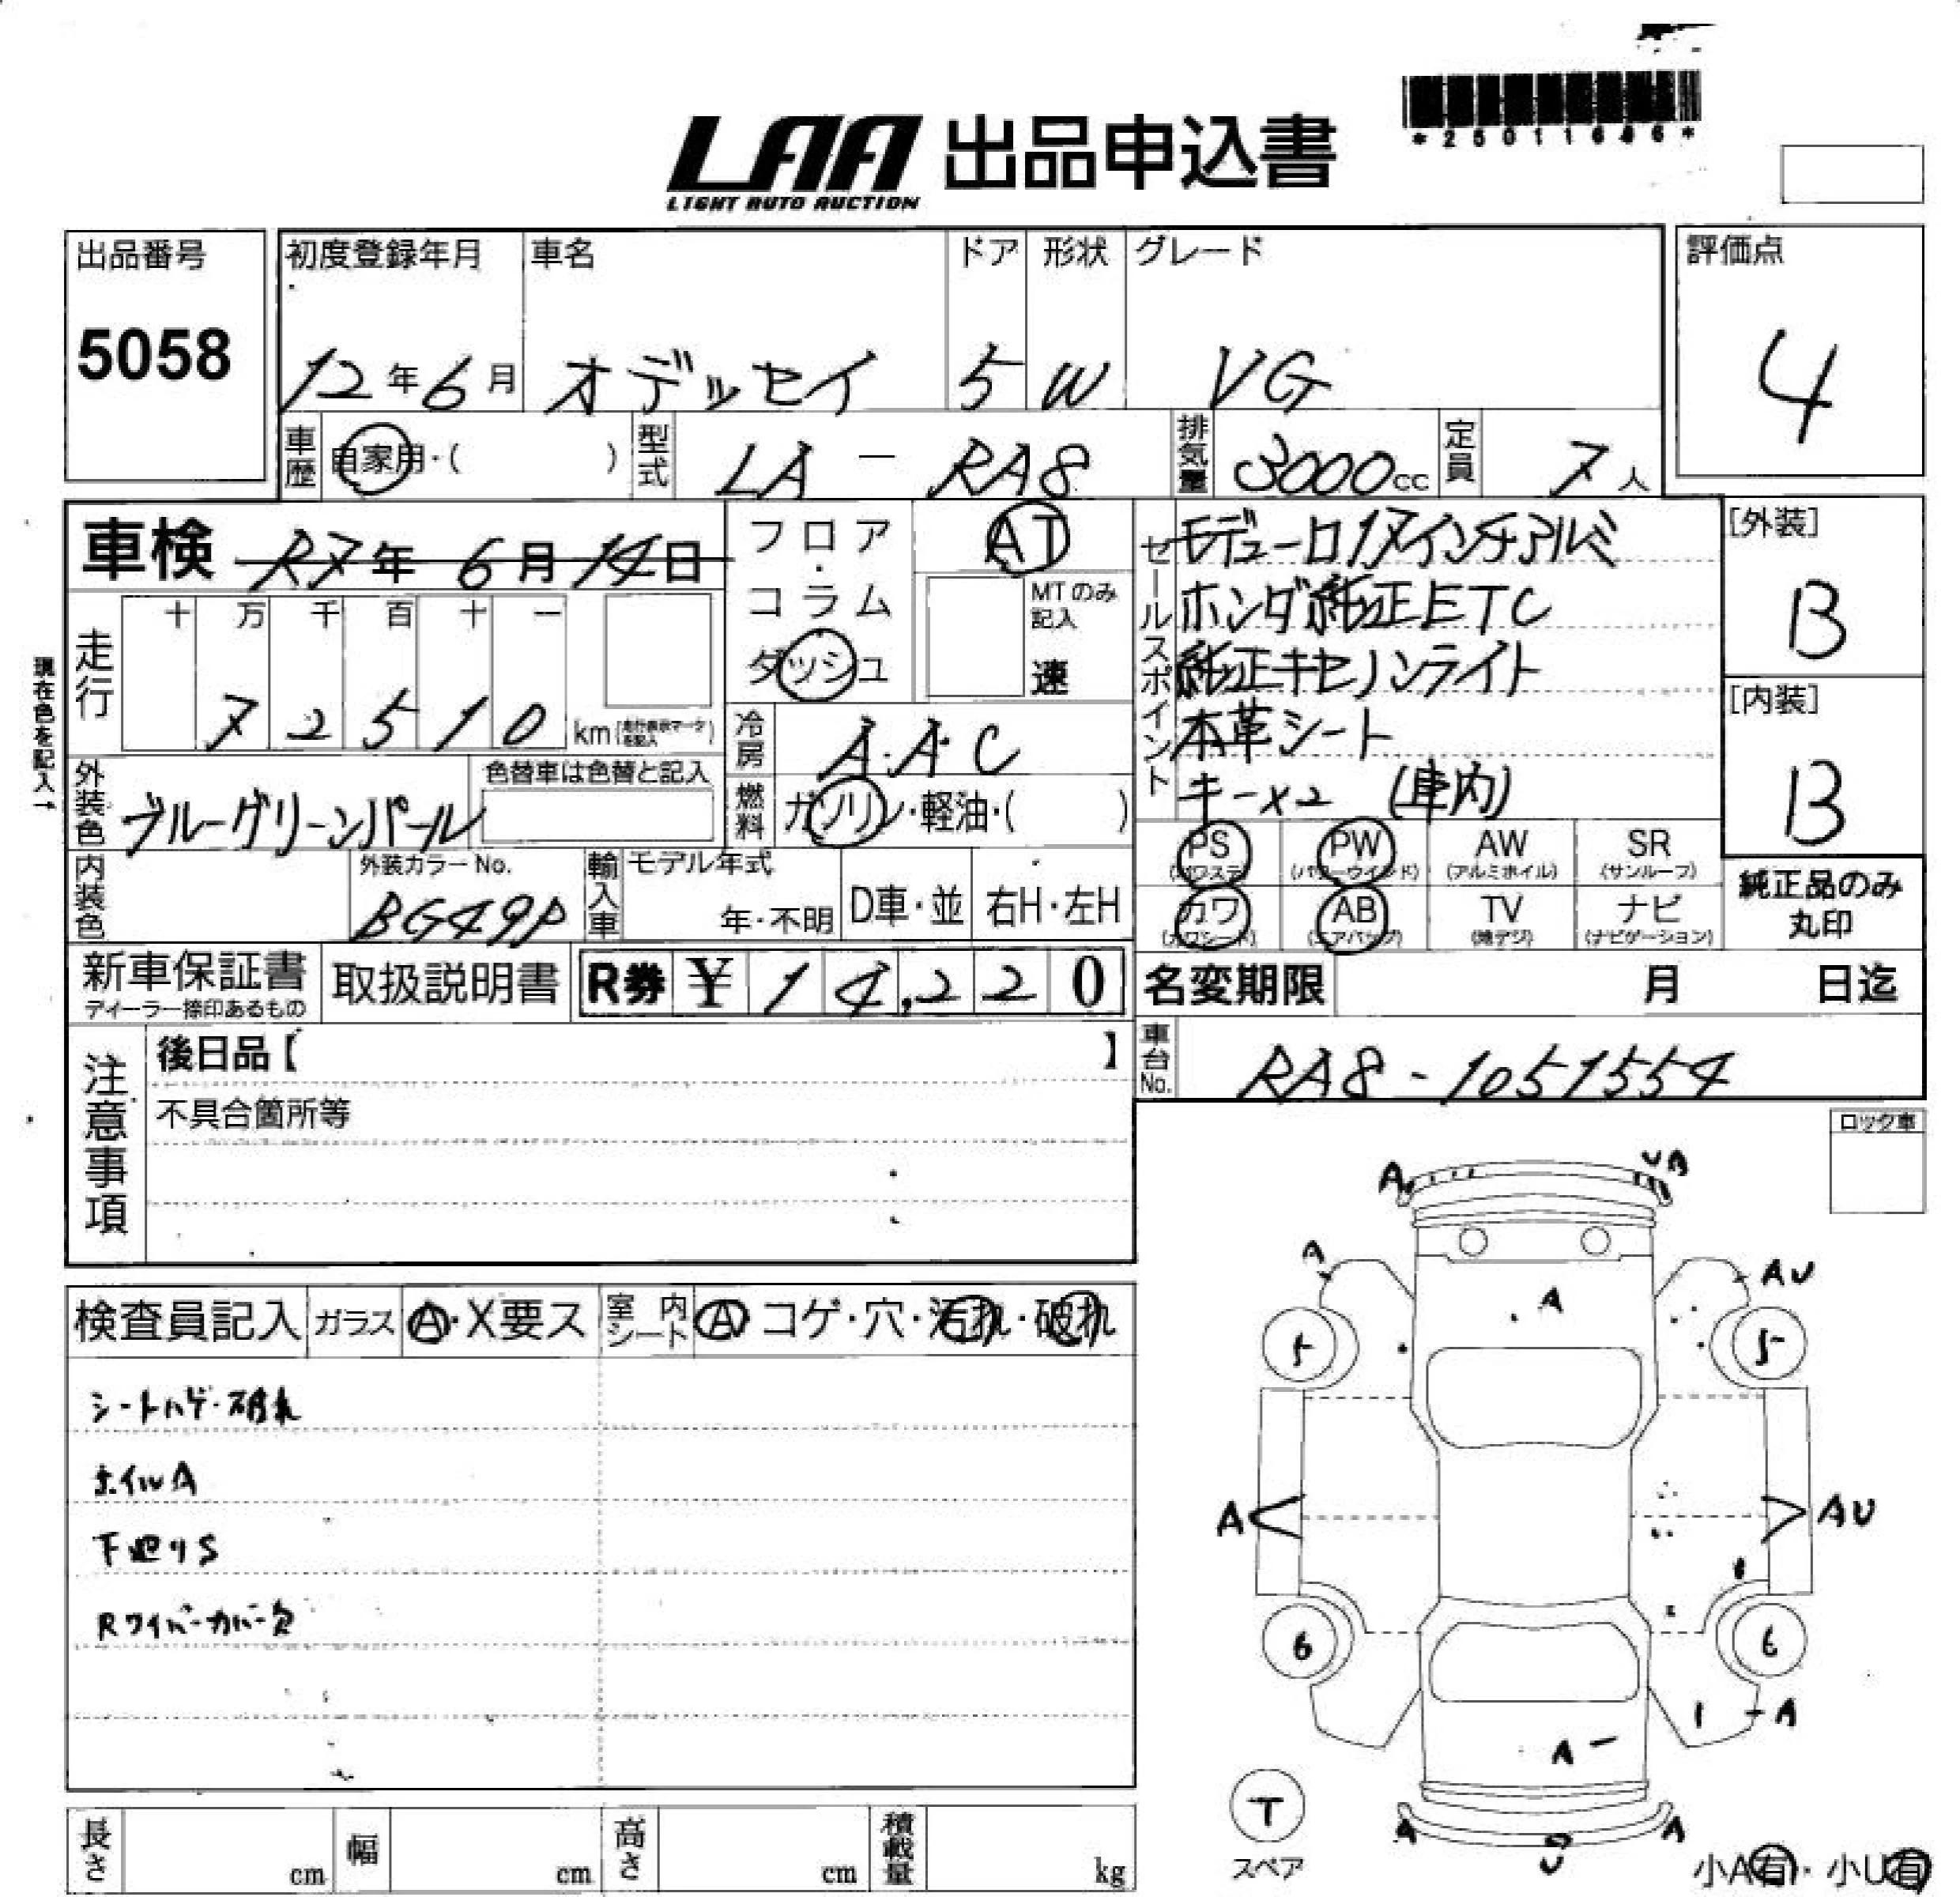 *25011646*
LAA 出品申込書
LIGHT AUTO AUCTION
出品番号 初度登録年月 車名 ドア 形状 グレード 評価点
5058 12年6月 オデッセイ 5 W VG 4
車歴 自家用・( ) 型式 LA - RA8 排気量 3000cc 定員 7人
車検 R7年 6月 14日
フロア・コラム
ダッシュ
AT
MTのみ記入
速
セールスポイント
モデューロ17インチアルミ
ホンダ純正ETC
純正キセノンライト
本革シート
キー×2 (車内)
[外装]
B
[内装]
B
現在色を記入→
走行 十 万 千 百 十 一
7 2 5 1 0 km
冷房 A.A.C
外装色 ブルーグリーンパール 色替車は色替と記入
燃料 ガソリン・軽油・( )
内装色 外装カラーNo. BG49P
輸入車 モデル年式 年・不明 D車・並 右H・左H
PS PW AW SR
(パワステ) (パワーウインド) (アルミホイル) (サンルーフ)
カワ AB TV ナビ
(カワシート) (エアバッグ) (地デジ) (ナビゲーション)
純正品のみ
丸印
新車保証書 取扱説明書 R券 ¥ 1 4,2 2 0
ディーラー捺印あるもの
名変期限 月 日迄
車台No. RA8-1051554
注意事項
後日品【 】
不具合箇所等
ロック車
検査員記入 ガラス A・X要ス 室内シート A コゲ・穴・汚れ・破れ
シートハゲ・破れ
ホイルA
下廻りS
Rワイパーカバー欠
A UA
A AU
A
5 5
A AU
6 6
A
A
T
スペア
A U A
小A有・小U有
長さ cm 幅 cm 高さ cm 積載量 kg